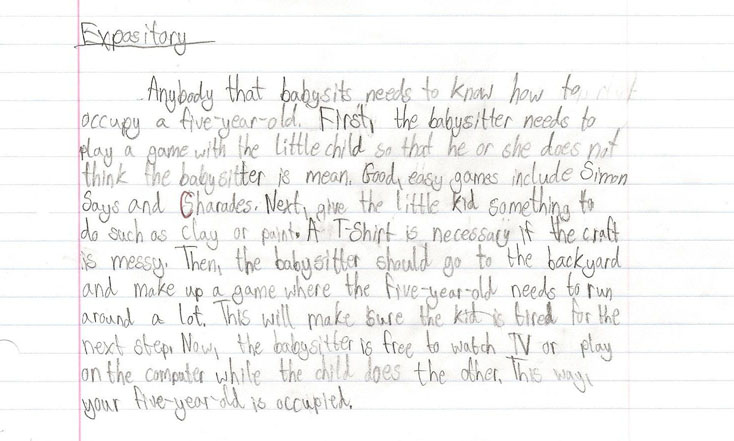 Expository
Anybody that babysits needs to know how to
occupy a five-year-old. First, the babysitter needs to
play a game with the little child so that he or she does not
think the babysitter is mean. Good, easy games include Simon
Says and Charades. Next, give the little kid something to
do such as clay or paint. A T-Shirt is necessary if the craft
is messy. Then, the babysitter should go to the backyard
and make up a game where the five-year-old needs to run
around a lot. This will make sure the kid is tired for the
next step. Now, the babysitter is free to watch TV or play
on the computer while the child does the other. This way,
your five-year-old is occupied.